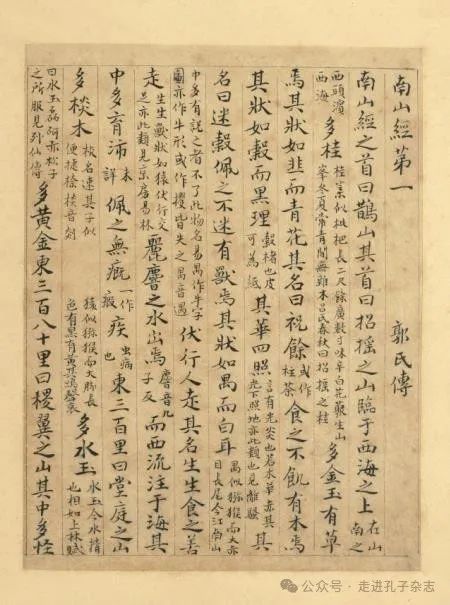 南山經第一 郭氏傳
南山經之首曰䳍山其首曰招搖之山臨于西海之上 在山南之
西頭濱西海 多桂 桂葉似枇杷長二尺餘廣數寸味辛白花叢生山峯冬夏常青間無雜木呂氏春秋曰招搖之桂 多金玉有草
焉其狀如韭而青花其名曰祝餘 或作桂荼 食之不飢有木焉
其狀如榖而黑理 榖楮也皮可為紙 其華四照 言有光炎也若木華赤其光下照地亦此類也見離騷 其
名曰迷榖佩之不迷有獸焉其狀如禺而白耳 禺似獼猴而大赤目長尾今江南山
中多有說之者不了此物名禺作牛字圖亦作牛形或作猴皆失之禺音遇 伏行人走其名生生食之善
走 生生獸狀如猿伏行交足亦此類見京房易林 麗𪊨之水出焉 𪊨音几子反 而西流注于海其
中多育沛 未詳 佩之無瘕 一作瘕 疾 虫病也 東三百里曰堂庭之山
多棪木 棪名連其子似 便捷 棪音剡 猿似獼猴而大脚長色有黑有黃其鳴聲哀 多水玉 水玉今水精也相如上林賦
曰水玉磊砢赤松子之所服見列仙傳 多黃金東三百八十里曰稷翼之山其中多怪
公众号·走进孔子杂志